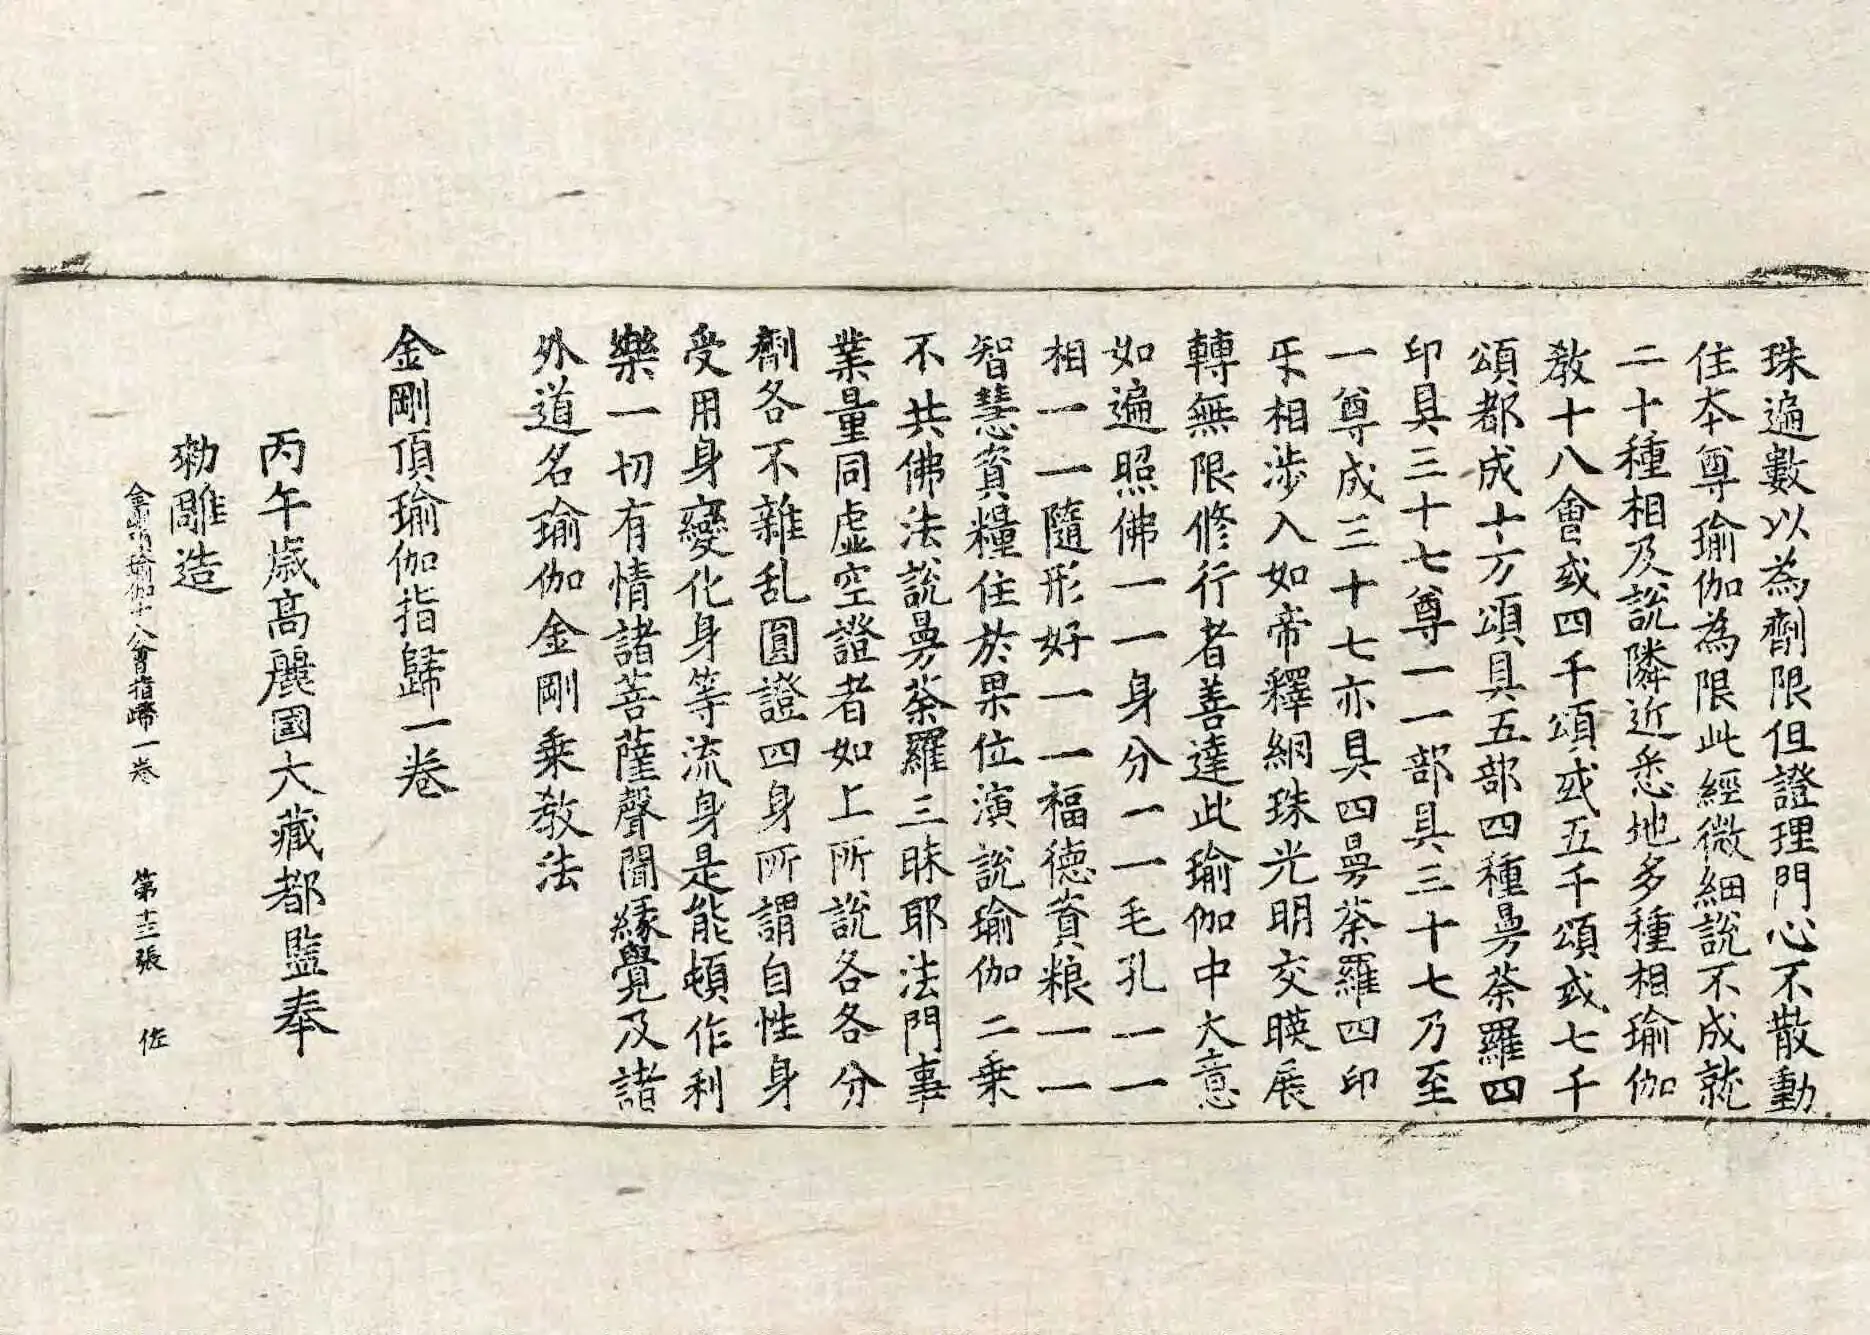 珠遍數以為劑限但證理門心不散動
住夲尊瑜伽為限此經微細說不成就
二十種相及說隣近悉地多種相瑜伽
教十八會或四千頌或五千頌或七千
頌都成十万頌具五部四種曼荼羅四
印具三十七尊一一部具三十七乃至
一尊成三十七亦具四曼荼羅四印
乐相涉入如帝釋網珠光明交暎展
轉無限修行者善達此瑜伽中大意
如遍照佛一一身分一一毛孔一一
相一一隨形好一一福德資粮一一
智慧資糧住於果位演說瑜伽二乗
不共佛法說曼荼羅三昧耶法門事
業量同虛空證者如上所說各各分
劑各不雜乱圓證四身所謂自性身
受用身變化身等流身是能頓作利
樂一切有情諸菩薩聲聞緣覺及諸
外道名瑜伽金剛乗教法
金剛頂瑜伽指歸一卷
丙午歲高麗國大藏都監奉
勑雕造
金剛頂瑜伽十八會指歸一卷 第十三張 佐